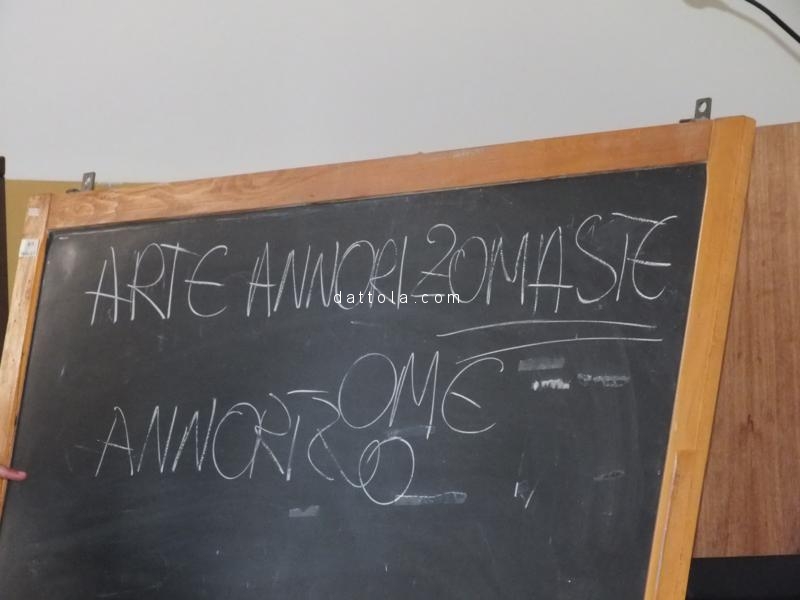 ARTE ANNORIZOMASTE
dattola.com
OME
ANNORIZO